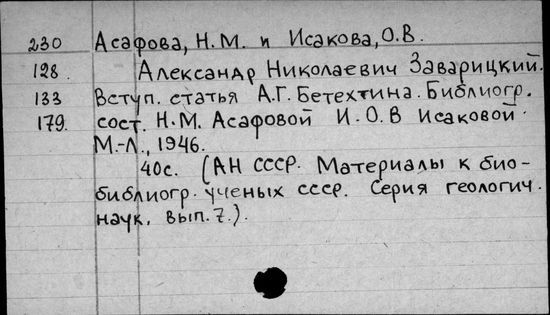 230 Асафова, Н.М. и Исакова, О.В.
128. Александр Николаевич Заварицкий.
133 Вступ. статья А.Г. Бетехтина. Библиогр.
179. сост. Н.М. Асафовой И. О.В Исаковой.
М.-Л., 1946.
40с. (АН СССР. Материалы к био-
библиогр. ученых ссср. Серия геологич.
наук. вып. 7.).